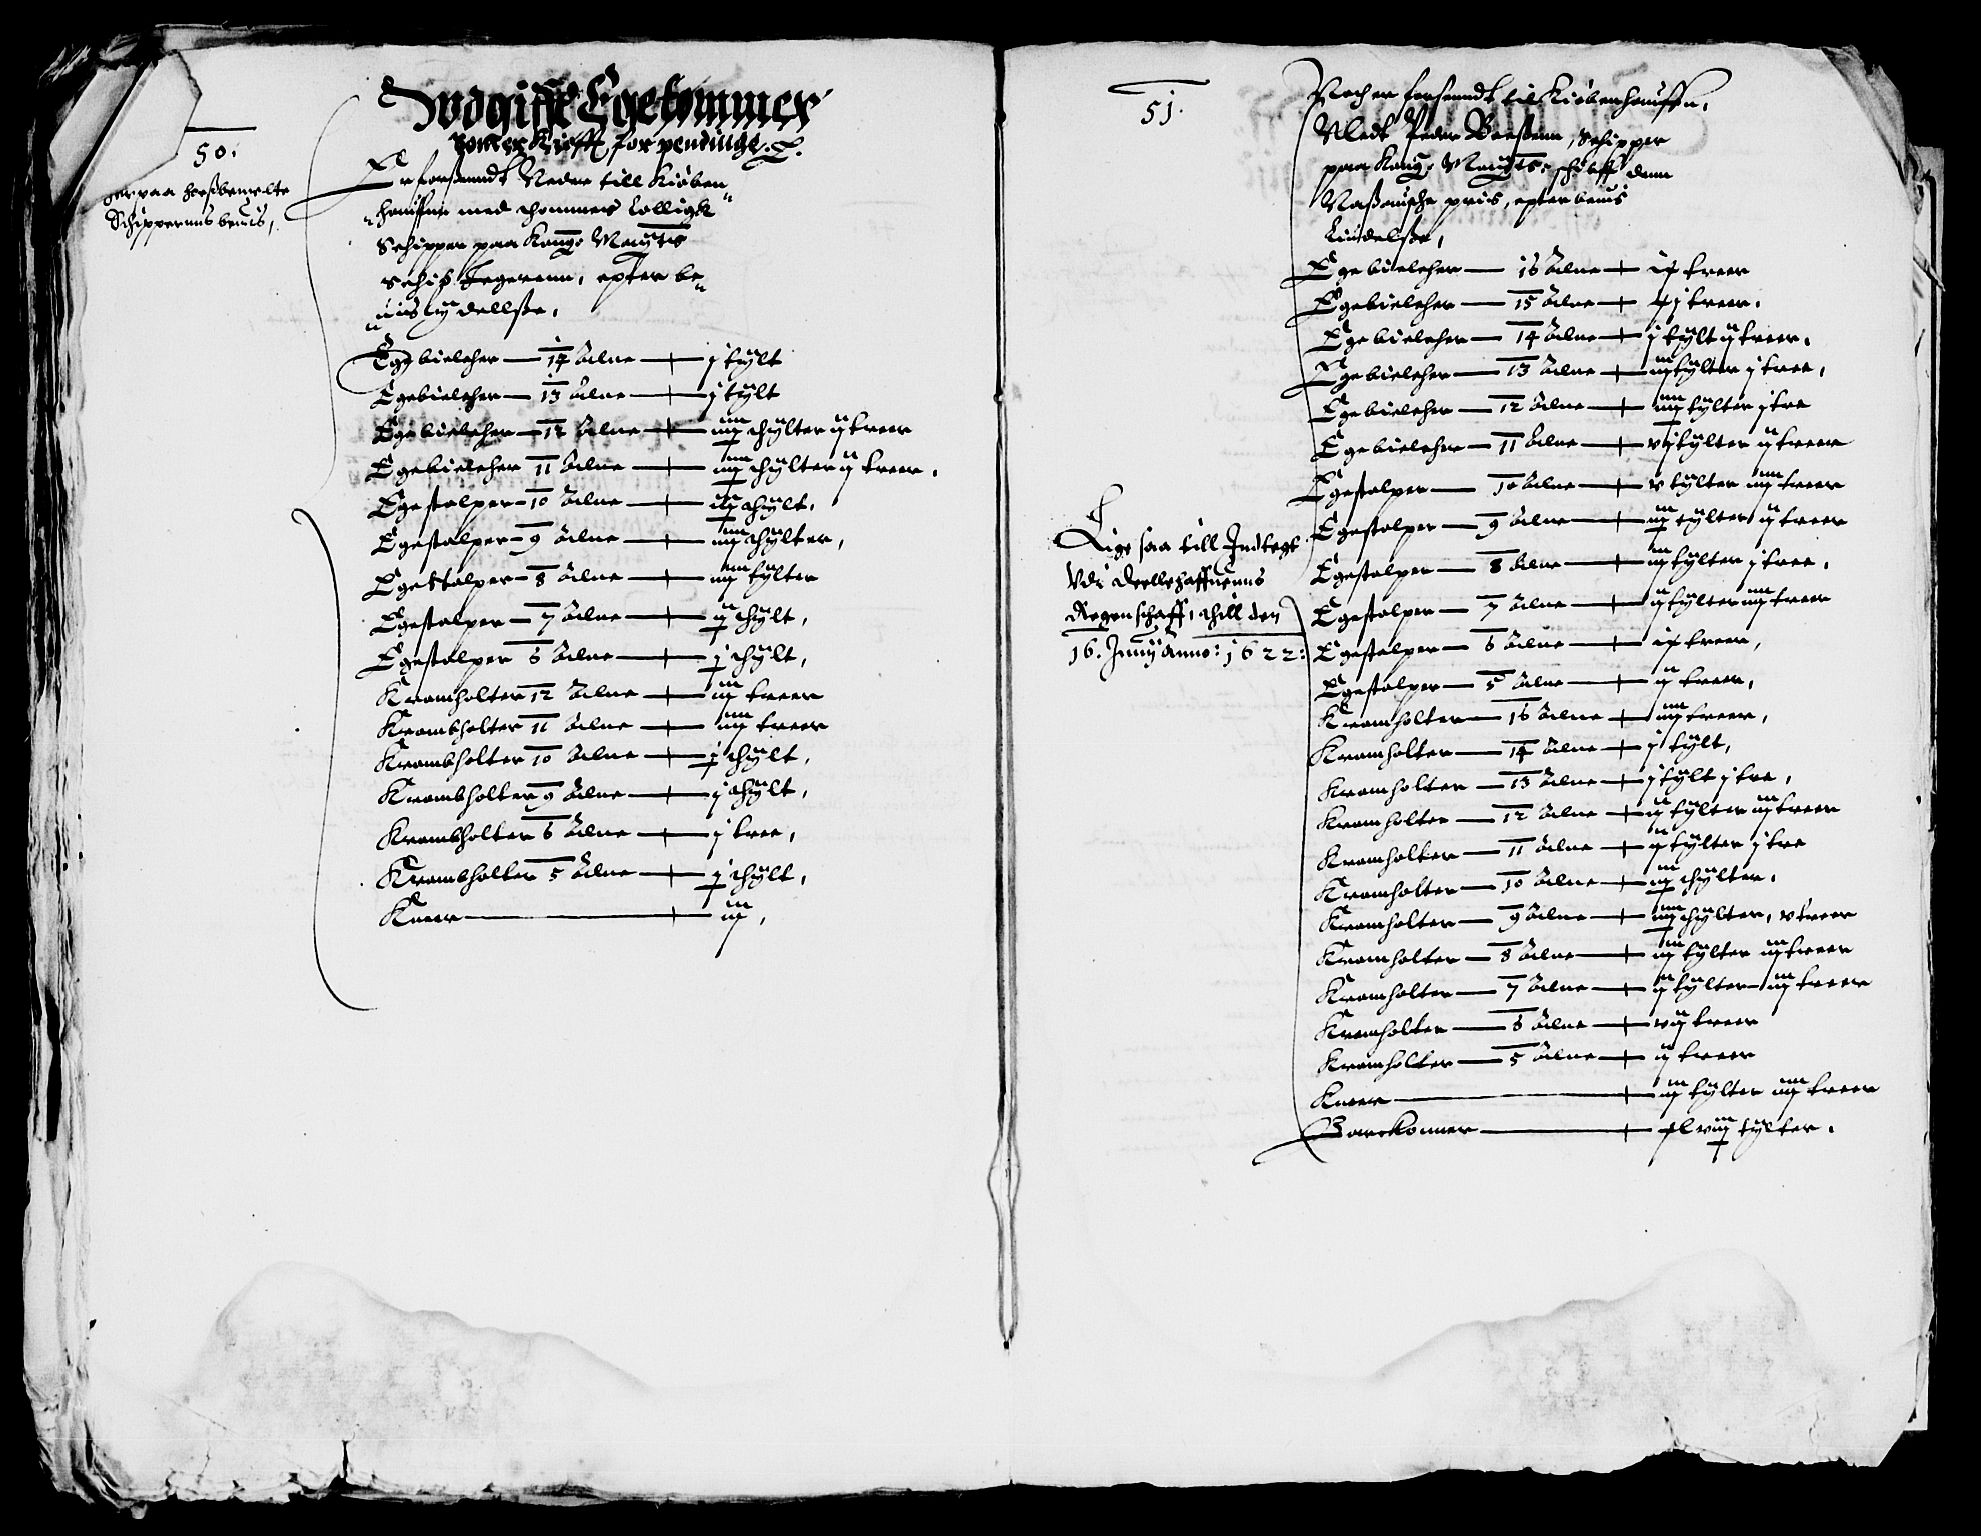 50.
ger paa forßbemelte
Schippermns beuis,
Vdgifft Egetømmer
som er Kiøfft for pendinge.
Er forsenndt Neder till Kiøben
haufnn med Thommes Lollicgk
Schipper paa Kong: Maÿtts
schib Tegerenn, epter be
uiis Lÿdellsße,
Egebielcher — 14 Alne — j tÿlt
Egebielcher — 13 Alne — j tÿlt
Egebielcher — 12 Alne — iiij thÿlter ij treer
Egebielcher 11 Alne — iiij thÿlter ij treer.
Egestolper — 10 Alne — thÿlt,
Egestolper — 9 Alne — iiij thÿlter,
Egestolper — 8 Alne — iiij tÿlter
Egestolper — 7 Alne — ij thÿlt,
Egestolper 6 Alne — j thÿlt,
Kromholter 12 Alne — iij treer
Krombholter 11 Alne — iiij treer
Krombholter 10 Alne — j thÿlt,
Krombholter 9 Alne — j thÿlt,
Krombholter 6 Alne — j tree,
Krombholter 5 Alne — j thÿlt,
Kneer — iij,
51.
Noch er forsenndt til Kiøbenhauffn,
Medt Peder Boeßenn, Schipper
paa Kong: Maÿtts: schiff denn
Naßauische pris, epter beuis
Liudelße,
Egebielcher — 16 Alne — ix treer
Egebielcher — 15 Alne — xj treer.
Egebielcher — 14 Alne — j tÿlt ij treer.
Egebielcher — 13 Alne — iij tÿlter j tree,
Egebielcher — 12 Alne — iiij tÿlter j tre
Egebielcher — 11 Alne — vj tÿlter ij treer
Egestolper — 10 Alne — v tÿlter iiij treer
Egestolper — 9 Alne — iij tÿlter ij treer
Egestolper — 8 Alne — iij tÿlter j tree,
Egestolper — 7 Alne — ij tÿlter iiij treer
Egestolper — 6 Alne — ix treer,
Egestolper — 5 Alne — ij treer,
Kromholter — 16 Alne — iiij treer,
Kromholter — 14 Alne — j tÿlt,
Kromholter — 13 Alne — j tÿlt j tre,
Kromholter — 12 Alne — ij tÿlter iij treer
Kromholter — 11 Alne — ij tÿlter j tre
Kromholter — 10 Alne — iij thÿlter.
Kromholter — 9 Alne — iiij thÿlter, v treer
Kromholter — 8 Alne — iij tÿlter iij treer
Kromholter — 7 Alne — ij tÿlter iij treer
Kromholter — 6 Alne — vij treer
Kromholter — 5 Alne — ij treer
Kneer — iij tÿlter iiij treer
Barckonner — xlviij tÿlter.
Lige saa till Indtegt
Vdj
Regenschaff, thill den
16. Junij Anno: 1622: